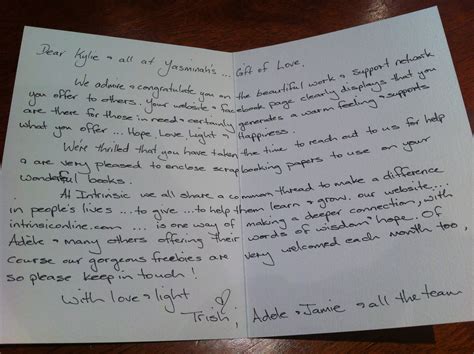 Dear Kylie & all at Yasminah's ... Gift of Love.
We admire & congratulate you on the beautiful work & support network
you offer to others. Your website & facebook page clearly displays that you
are there for those in need & certainly generates a warm feeling & supports
what you offer ... Hope, Love, Light & Happiness.
We're thrilled that you have taken the time to reach out to us for help
& are very pleased to enclose scrapbooking papers to use on your
wonderful books.
At Intrinsic we all share a common thread to make a difference
in people's lives ... to give ... to help them learn & grow. Our website ...
intrinsiconline.com ... is one way of making a deeper connection, with
Adele & many others offering their words of wisdom & hope. Of
course our gorgeous freebies are very welcomed each month too,
so please keep in touch!
With love & light
Trish, Adele & Jamie & all the team